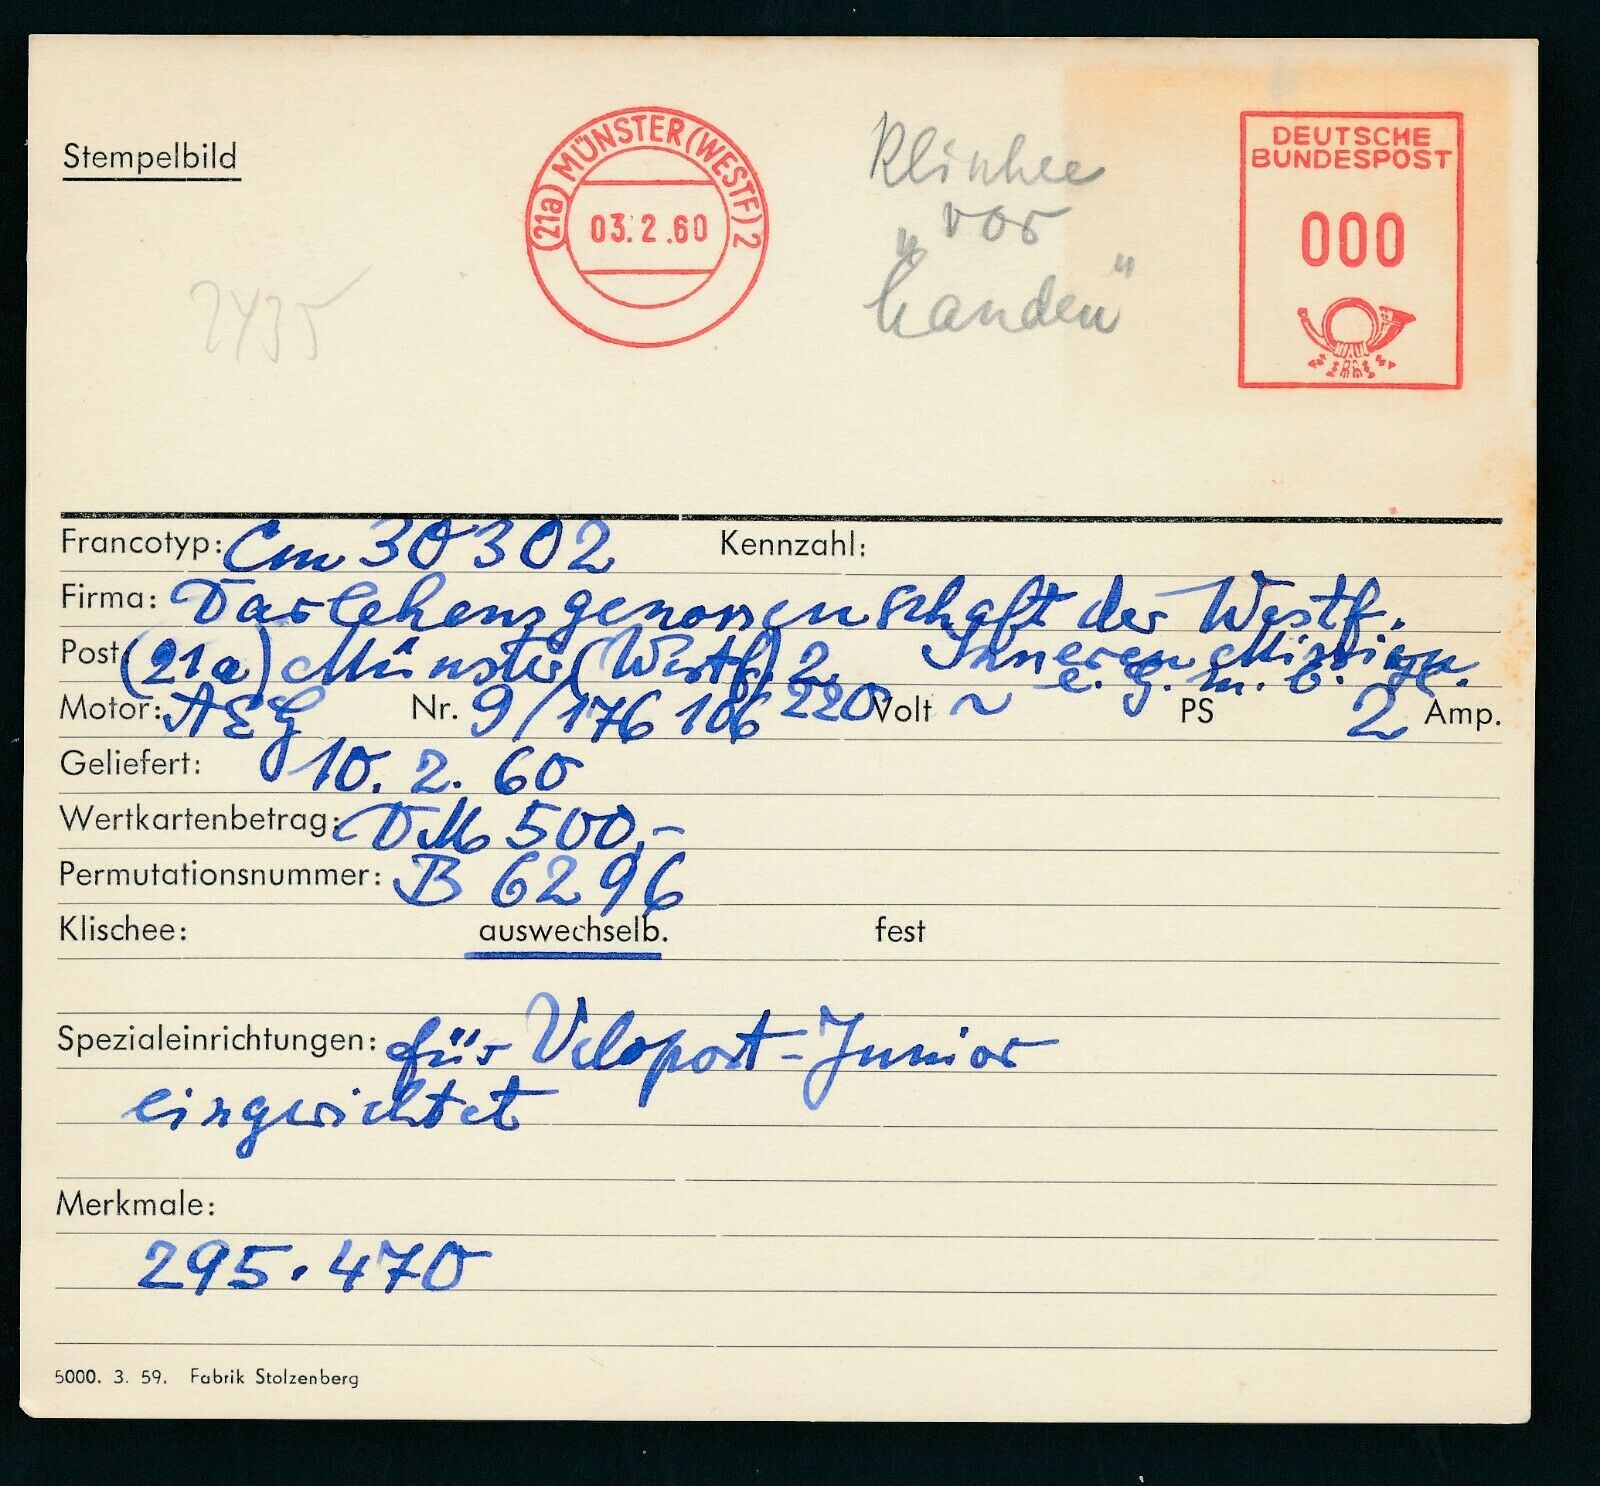 Stempelbild
(21a) MÜNSTER (WESTF) 2
03.2.60
Klischee
vor
"handen"
DEUTSCHE
BUNDESPOST
000
2435
Francotyp: Cm 30302 Kennzahl:
Firma: Darlehensgenossenschaft der Westf.
Post (21a) Münster (Westf). 2. Inneren Mission
e. G. m. b. H.
Motor: AEG Nr. 9/176 106 220 Volt ~ PS 2 Amp.
Geliefert: 10. 2. 60
Wertkartenbetrag: DM 500,-
Permutationsnummer: B 6296
Klischee: auswechselb. fest
Spezialeinrichtungen: für Velopost-Junior
eingerichtet
Merkmale:
295.470
5000. 3. 59. Fabrik Stolzenberg